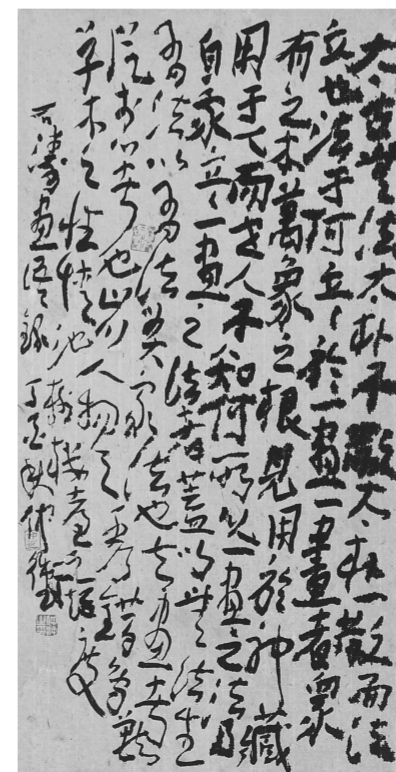 太古無法太朴不散太朴一散而法
立也法于何立立於一畫一畫者眾
有之本萬象之根見用於神藏
用于人而世人不知何所以一畫之法乃
自我立一畫之法者蓋以無法生
有法以有法貫眾法也夫畫者
從於心者也山川人物之秀錯鳥獸
草木之性情池榭樓臺之矩度
石濤畫語錄 丁酉秋